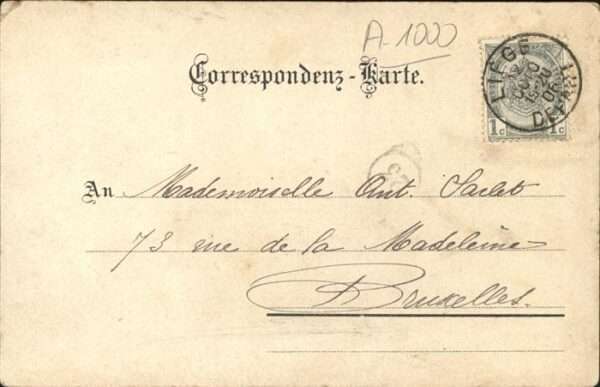 A-1000
LIÈGE
DÉPART
1c 1c
Correspondenz-Karte.
An Mademoiselle Ant. Sarlet
73 rue de la Madeleine
Bruxelles.